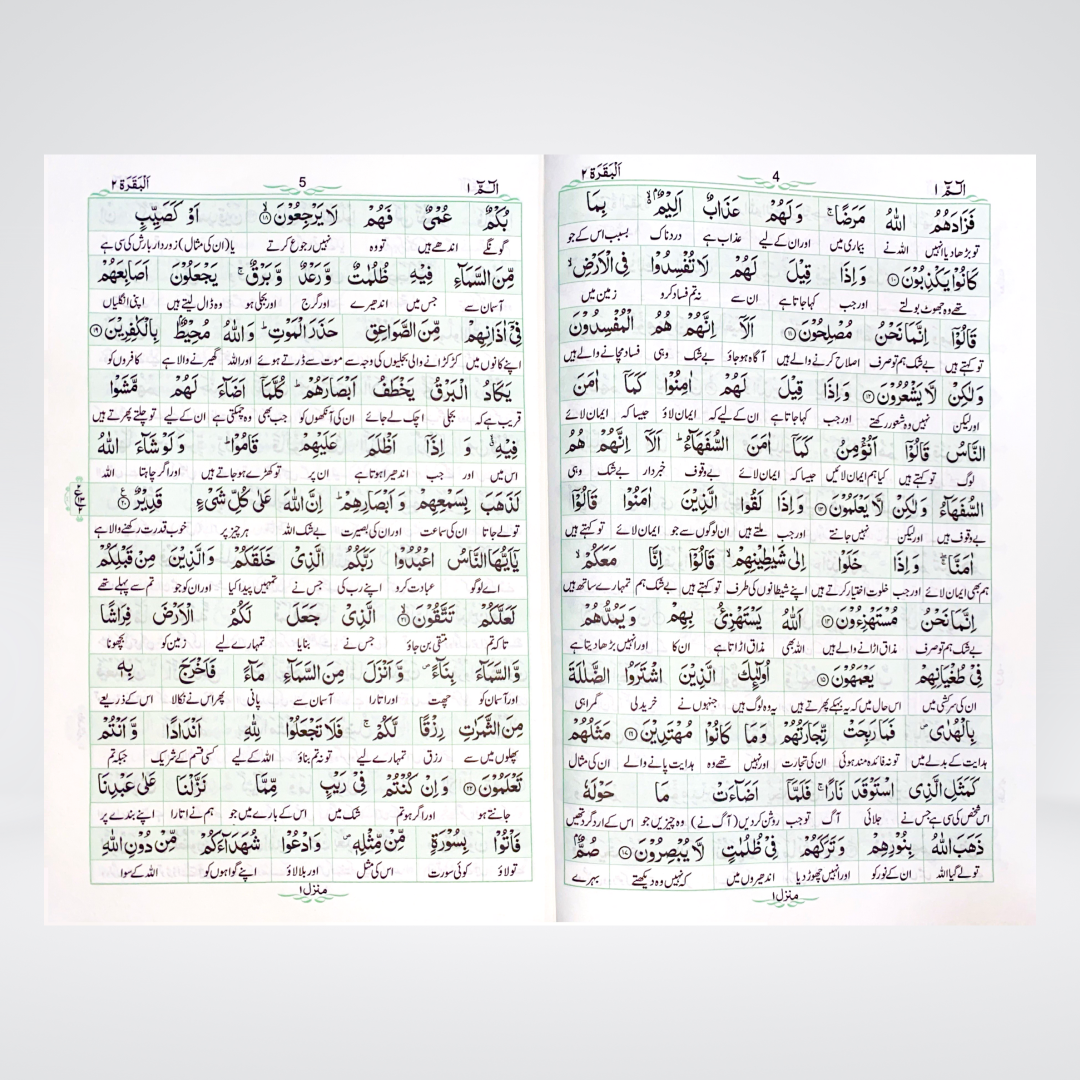 الٓمّٓ ١ 4 اَلْبَقَرَة ٢
فَزَادَهُمُ اللّٰهُ مَرَضًا ۚ وَلَهُمْ عَذَابٌ اَلِيْمٌۢ ۙ۬ بِمَا
تو بڑھا دیا انہیں اللہ نے بیماری میں اور ان کے لیے عذاب ہے دردناک بسبب اس کے جو
كَانُوْا يَكْذِبُوْنَ ۝۱۰ وَاِذَا قِيْلَ لَهُمْ لَا تُفْسِدُوْا فِي الْاَرْضِ ۙ
تھے وہ جھوٹ بولتے اور جب کہا جاتا ہے ان سے نہ تم فساد کرو زمین میں
قَالُوْٓا اِنَّمَا نَحْنُ مُصْلِحُوْنَ ۝۱۱ اَلَآ اِنَّهُمْ هُمُ الْمُفْسِدُوْنَ
تو کہتے ہیں بےشک ہم تو صرف اصلاح کرنے والے ہیں آگاہ ہو جاؤ بےشک وہی فساد مچانے والے ہیں
وَلٰكِنْ لَّا يَشْعُرُوْنَ ۝۱۲ وَاِذَا قِيْلَ لَهُمْ اٰمِنُوْا كَمَآ اٰمَنَ
اور لیکن نہیں وہ شعور رکھتے اور جب کہا جاتا ہے ان کے لیے کہ ایمان لاؤ جیسا کہ ایمان لائے
النَّاسُ قَالُوْٓا اَنُؤْمِنُ كَمَآ اٰمَنَ السُّفَهَآءُ ؕ اَلَآ اِنَّهُمْ هُمُ
لوگ تو کہتے ہیں کیا ہم ایمان لائیں جیسا کہ ایمان لائے بےوقوف خبردار بےشک وہی
السُّفَهَآءُ وَلٰكِنْ لَّا يَعْلَمُوْنَ ۝۱۳ وَاِذَا لَقُوا الَّذِيْنَ اٰمَنُوْا قَالُوْٓا
بےوقوف ہیں اور لیکن نہیں جانتے اور جب ملتے ہیں ان لوگوں سے جو ایمان لائے تو کہتے ہیں
اٰمَنَّا ۖۚ وَاِذَا خَلَوْا اِلٰى شَيٰطِيْنِهِمْ ۙ قَالُوْٓا اِنَّا مَعَكُمْ ۙ
ہم بھی ایمان لائے اور جب خلوت اختیار کرتے ہیں اپنے شیطانوں کی طرف تو کہتے ہیں بےشک ہم تمہارے ساتھ ہیں
اِنَّمَا نَحْنُ مُسْتَهْزِءُوْنَ ۝۱۴ اَللّٰهُ يَسْتَهْزِئُ بِهِمْ وَيَمُدُّهُمْ
بےشک ہم تو صرف مذاق اڑانے والے ہیں اللہ بھی مذاق اڑاتا ہے ان کا اور انہیں بڑھا دیتا ہے
فِيْ طُغْيَانِهِمْ يَعْمَهُوْنَ ۝۱۵ اُولٰٓئِكَ الَّذِيْنَ اشْتَرَوُا الضَّلٰلَةَ
ان کی سرکشی میں اس حال میں کہ یہ بہکے پھرتے ہیں یہ وہ لوگ ہیں جنہوں نے خرید لی گمراہی
بِالْهُدٰى ۪ فَمَا رَبِحَتْ تِّجَارَتُهُمْ وَمَا كَانُوْا مُهْتَدِيْنَ ۝۱۶ مَثَلُهُمْ
ہدایت کے بدلے میں تو نہ فائدہ مند ہوئی ان کی تجارت اور نہیں تھے وہ ہدایت پانے والے ان کی مثال
كَمَثَلِ الَّذِي اسْتَوْقَدَ نَارًا ۚ فَلَمَّآ اَضَآءَتْ مَا حَوْلَهٗ
اس شخص کی سی ہے جس نے جلائی آگ تو جب روشن کر دیں (آگ نے) وہ چیزیں جو اس کے اردگرد تھیں
ذَهَبَ اللّٰهُ بِنُوْرِهِمْ وَتَرَكَهُمْ فِيْ ظُلُمٰتٍ لَّا يُبْصِرُوْنَ ۝۱۷ صُمٌّۢ
تو لے گیا اللہ ان کے نور کو اور انہیں چھوڑ دیا اندھیروں میں کہ نہیں وہ دیکھتے بہرے
منزل ١
الٓمّٓ ١ 5 اَلْبَقَرَة ٢
بُكْمٌ عُمْيٌ فَهُمْ لَا يَرْجِعُوْنَ ۝۱۸ ۙ اَوْ كَصَيِّبٍ
گونگے اندھے ہیں تو وہ نہیں رجوع کرتے یا (ان کی مثال) زوردار بارش کی سی ہے
مِّنَ السَّمَآءِ فِيْهِ ظُلُمٰتٌ وَّرَعْدٌ وَّبَرْقٌ ۚ يَجْعَلُوْنَ اَصَابِعَهُمْ
آسمان سے جس میں اندھیرے اور گرج اور بجلی ہو وہ ڈال لیتے ہیں اپنی انگلیاں
فِيْٓ اٰذَانِهِمْ مِّنَ الصَّوَاعِقِ حَذَرَ الْمَوْتِ ؕ وَاللّٰهُ مُحِيْطٌۢ بِالْكٰفِرِيْنَ ۝۱۹
اپنے کانوں میں کڑکڑانے والی بجلیوں کی وجہ سے موت سے ڈرتے ہوئے اور اللہ گھیرنے والا ہے کافروں کو
يَكَادُ الْبَرْقُ يَخْطَفُ اَبْصَارَهُمْ ؕ كُلَّمَآ اَضَآءَ لَهُمْ مَّشَوْا
قریب ہے کہ بجلی اچک لے جائے ان کی آنکھوں کو جب بھی وہ چمکتی ہے ان کے لیے تو چلتے پھرتے ہیں
فِيْهِ ۙ وَ اِذَآ اَظْلَمَ عَلَيْهِمْ قَامُوْا ؕ وَلَوْ شَآءَ اللّٰهُ
اس میں اور جب اندھیرا ہوتا ہے ان پر تو کھڑے ہو جاتے ہیں اور اگر چاہتا اللہ
لَذَهَبَ بِسَمْعِهِمْ وَاَبْصَارِهِمْ ؕ اِنَّ اللّٰهَ عَلٰى كُلِّ شَيْءٍ قَدِيْرٌ ۝۲۰
تو لے جاتا ان کی سماعت اور ان کی بصیرت بےشک اللہ ہر چیز پر خوب قدرت رکھنے والا ہے
يٰٓاَيُّهَا النَّاسُ اعْبُدُوْا رَبَّكُمُ الَّذِيْ خَلَقَكُمْ وَالَّذِيْنَ مِنْ قَبْلِكُمْ
اے لوگو عبادت کرو اپنے رب کی جس نے تمہیں پیدا کیا اور ان کو جو تم سے پہلے تھے
لَعَلَّكُمْ تَتَّقُوْنَ ۝۲۱ ۙ الَّذِيْ جَعَلَ لَكُمُ الْاَرْضَ فِرَاشًا
تاکہ تم متقی بن جاؤ جس نے بنایا تمہارے لیے زمین کو بچھونا
وَّالسَّمَآءَ بِنَآءً ۪ وَّاَنْزَلَ مِنَ السَّمَآءِ مَآءً فَاَخْرَجَ بِهٖ
اور آسمان کو چھت اور اتارا آسمان سے پانی پھر اس نے نکالا اس کے ذریعے
مِنَ الثَّمَرٰتِ رِزْقًا لَّكُمْ ۚ فَلَا تَجْعَلُوْا لِلّٰهِ اَنْدَادًا وَّاَنْتُمْ
پھلوں میں سے رزق تمہارے لیے تو نہ تم بناؤ اللہ کے لیے کسی قسم کے شریک جبکہ تم
تَعْلَمُوْنَ ۝۲۲ وَاِنْ كُنْتُمْ فِيْ رَيْبٍ مِّمَّا نَزَّلْنَا عَلٰى عَبْدِنَا
جانتے ہو اور اگر ہو تم شک میں اس کے بارے میں جو ہم نے اتارا اپنے بندے پر
فَاْتُوْا بِسُوْرَةٍ مِّنْ مِّثْلِهٖ ۪ وَادْعُوْا شُهَدَآءَكُمْ مِّنْ دُوْنِ اللّٰهِ
تو لاؤ کوئی سورت اس کی مثل اور بلا لاؤ اپنے گواہوں کو اللہ کے سوا
منزل ١